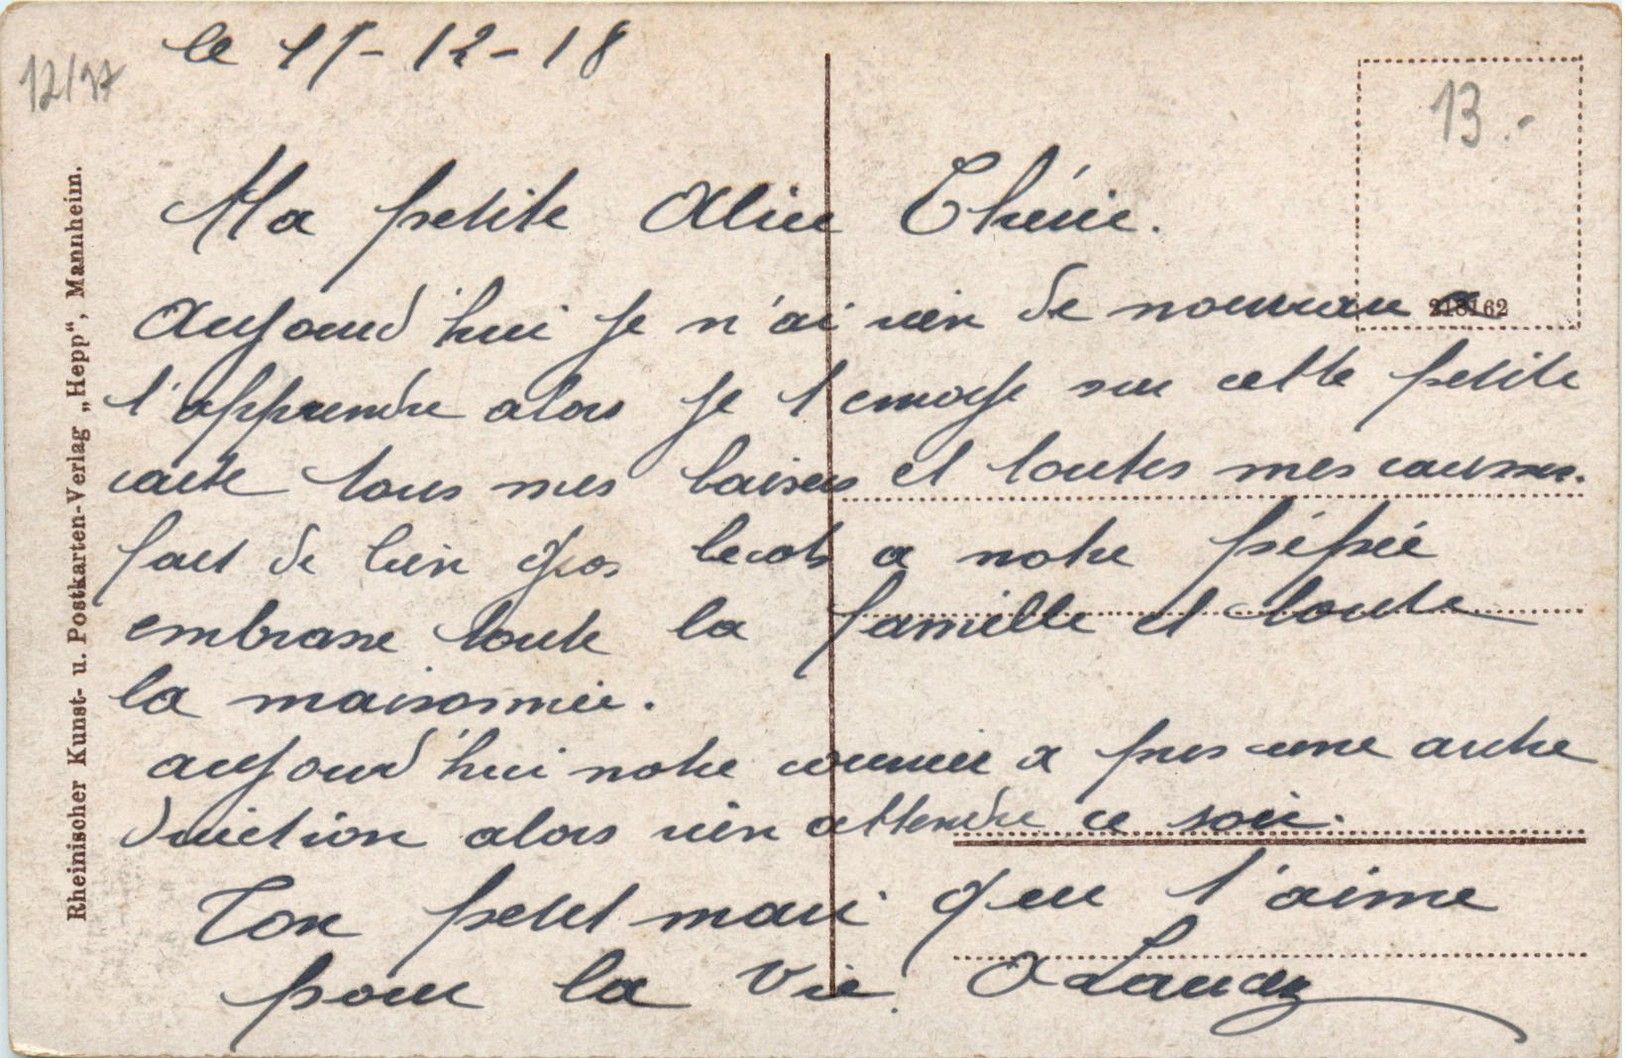 le 17-12-18
12/37
13.-
218162
Rheinischer Kunst- u. Postkarten-Verlag „Hepp“, Mannheim.
Ma petite Aline Chérie.
Aujourd'hui je n'ai rien de nouveau a
t'apprendre alors je t'envoie sur cette petite
carte tous mes baisers et toutes mes caresses.
fait de bien gros becots a notre pépée
embrasse toute la famille et toute
la maisonnée.
aujourd'hui notre courrier a pris une autre
direction alors rien attendre ce soir.
Ton petit mari qui t'aime
pour la vie.